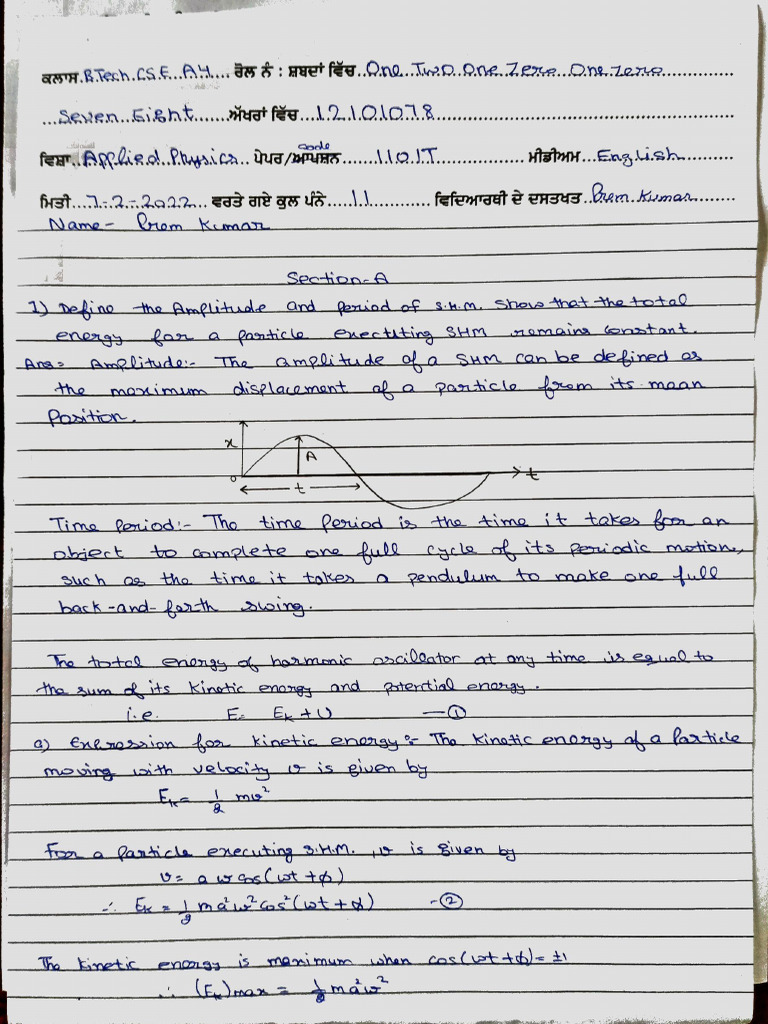 ਕਲਾਸ..B.Tech. C.S.E...A4.... ਰੋਲ ਨੰ : ਸ਼ਬਦਾਂ ਵਿੱਚ..One..Two..One..Zero...One..zero..............
...Seven..Eight.......ਅੱਖਰਾਂ ਵਿੱਚ....12101078.........................................
code
ਵਿਸ਼ਾ...Applied..Physics... ਪੇਪਰ/ਆਪਸ਼ਨ.......1101T................. ਮੀਡੀਅਮ...English..........
ਮਿਤੀ...7-2-2022... ਵਰਤੇ ਗਏ ਕੁਲ ਪੰਨੇ......11............. ਵਿਦਿਆਰਥੀ ਦੇ ਦਸਤਖਤ..Prem..Kumar........
Name- Prem Kumar
Section-A
1) Define the Amplitude and period of S.H.M. Show that the total
energy for a particle exectuting SHM remains constant.
Ans= Amplitude:- The amplitude of a SHM can be defined as
the maximum displacement of a particle from its maan
Position.
x
A
0
t
t
Time Period:- The time Period is the time it takes for an
object to complete one full cycle of its periodic motion,
such as the time it takes a pendulum to make one full
back-and-forth swing.
The total energy of harmonic oscillator at any time is equal to
the sum of its Kinetic energy and potential energy.
i.e. E= Ek+U —①
a) Exression for kinetic energy:- The Kinetic energy of a Particle
moving with velocity v is given by
Ek= 1/2 mv²
For a particle executing S.H.M., v is given by
v= a w cos(wt+ϕ)
∴ Ek = 1/2 ma²w²cos²(wt+ϕ) —②
The kinetic energy is maximum when cos(wt+ϕ)= ±1
∴ (Ek)max = 1/2 ma²w²